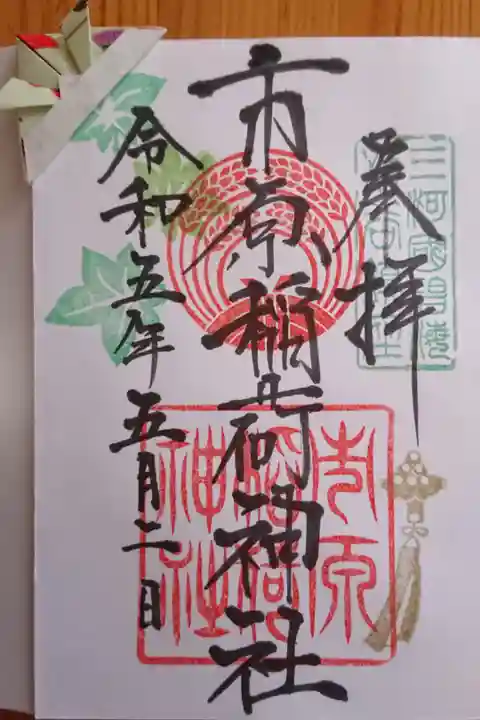 奉拝
市原稲荷神社
令和五年五月二日
市原
稲荷
神社